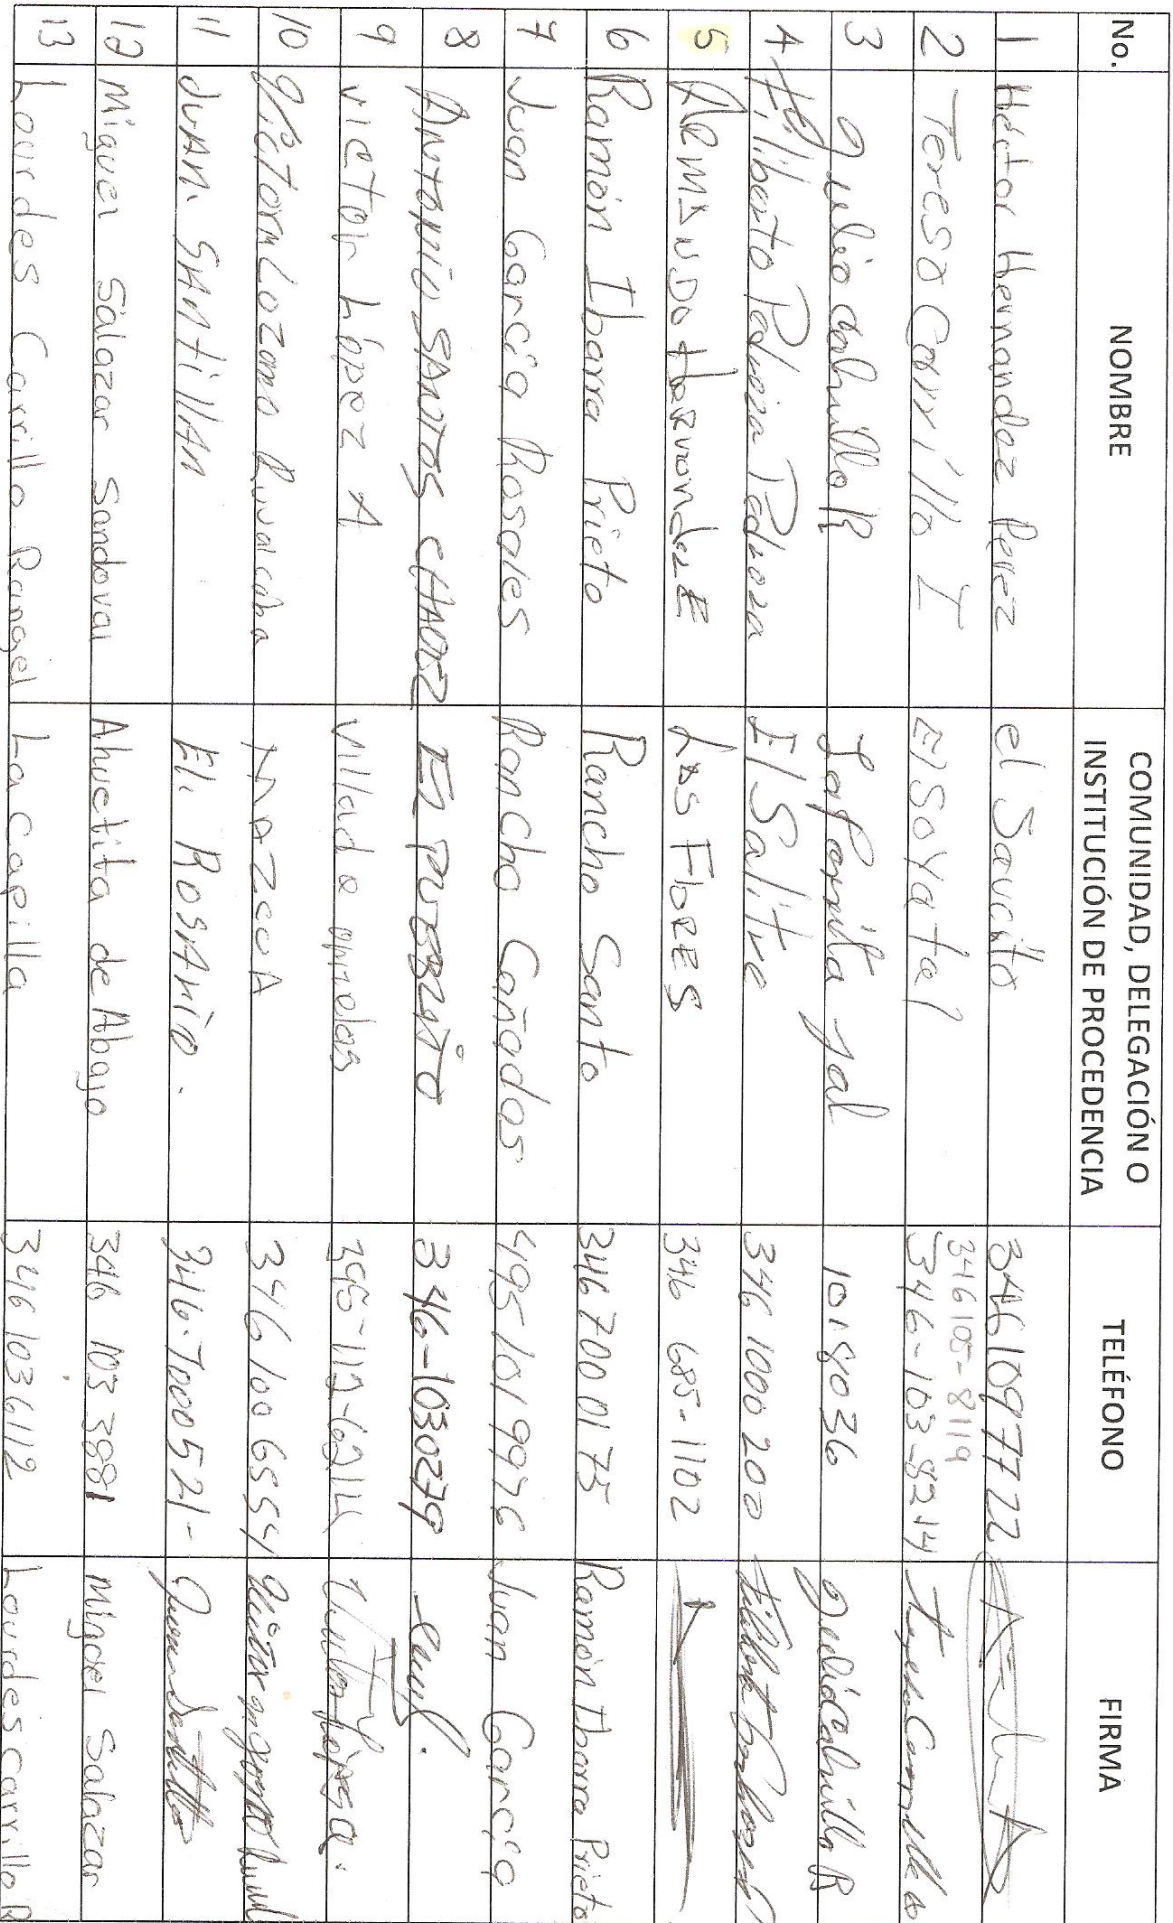 No. NOMBRE COMUNIDAD, DELEGACIÓN O INSTITUCIÓN DE PROCEDENCIA TELÉFONO FIRMA
1 Héctor Hernandez Perez el Saucito 3461097722
2 Teresa Carrillo I El Soyatal 346 105-8119 346-103-8244 Teresa Carrillo
3 Julio cahuilla R La Parita Jal 1018036 Julio Cahuilla R
4 Filiberto Pedroza Pedroza El Salitre 346 1000 200
5 ARMANDO HERNANDEZ E LAS FLORES 346 685-1102
6 Ramón Ibarra Prieto Rancho Santo 346 700 01 75 Ramón Ibarra Prieto
7 Juan García Rosales Rancho Cañadas 495 101 9976 Juan García
8 ANTONIO SANTOS CHAVEZ EL PUEBLITO 346-1030279
9 victor López A villa de ornelas 395-112-6214 Victor López A.
10 Victor M Lozano Ruvalcaba MAZCUA 346 100 6554
11 JUAN. SANTILLAN El. ROSARIO. 346-7000521- Juan Santillan
12 Miguel Salazar Sandoval Ahuetita de Abajo 346 103 3881 Miguel Salazar
13 Lourdes Carrillo Rangel La Capilla 346 1036112 Lourdes Carrillo R